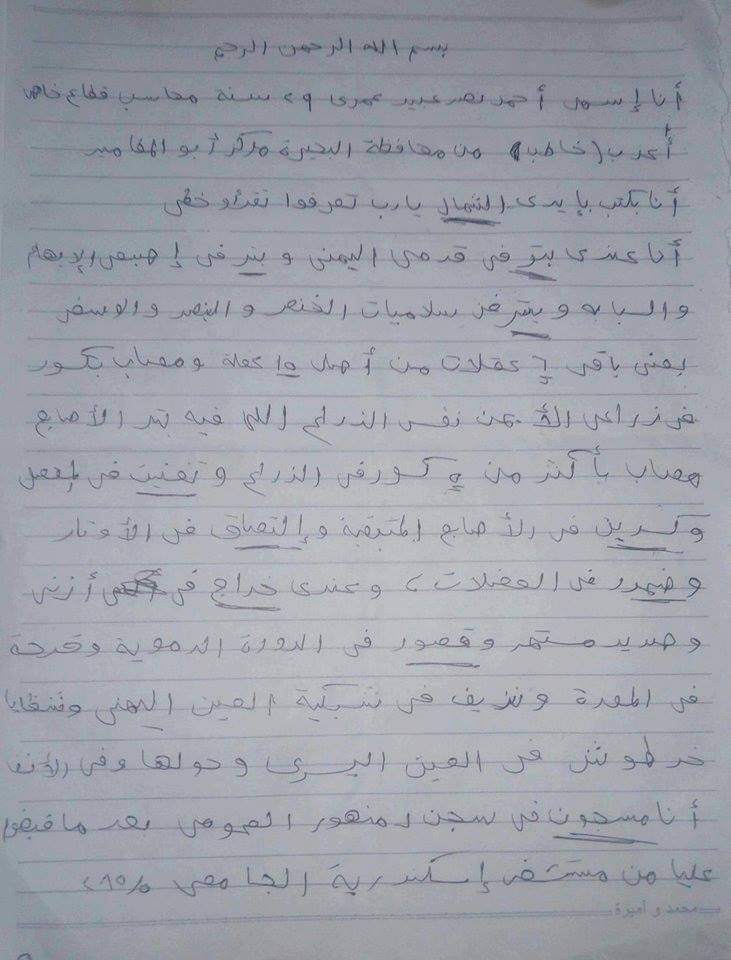 بسم الله الرحمن الرحيم
أنا إسمى أحمد نصر عبيد عمرى ٢٩ سنة محاسب قطاع خاص
أعزب (خاطب) من محافظة البحيرة مركز أبو المطامير
أنا بكتب بإيدى الشمال يارب تعرفوا تقرأو خطى
أنا عندى بتر فى قدمى اليمنى وبتر فى إصبعى الإبهام
والسبابه وبتر فى سلاميات الخنصر والبنصر والوسطى
يعنى باقى ٤ عقلات من أصل ١٥ عقلة ومصاب بكسور
فى ذراعى من نفس الذراع اللى فيه بتر الأصابع
مصاب بأكثر من ٥ كسور فى الذراع وتفتيت فى المفصل
و فى الأصابع المتبقية وإلتصاق فى الأوتار
وضمور فى العضلات، وعندى خراج فى أذنى
وصديد مستمر وقصور فى الدورة الدموية وقرحة
فى المعدة ونزيف فى شبكية العين اليمنى وشظايا
خرطوش فى العين اليسرى وحولها وفى الأنف
أنا مسجون فى سجن دمنهور العمومى بعد ما قبضوا
عليا من مستشفى إسكندرية الجامعى
محمد و أميرة